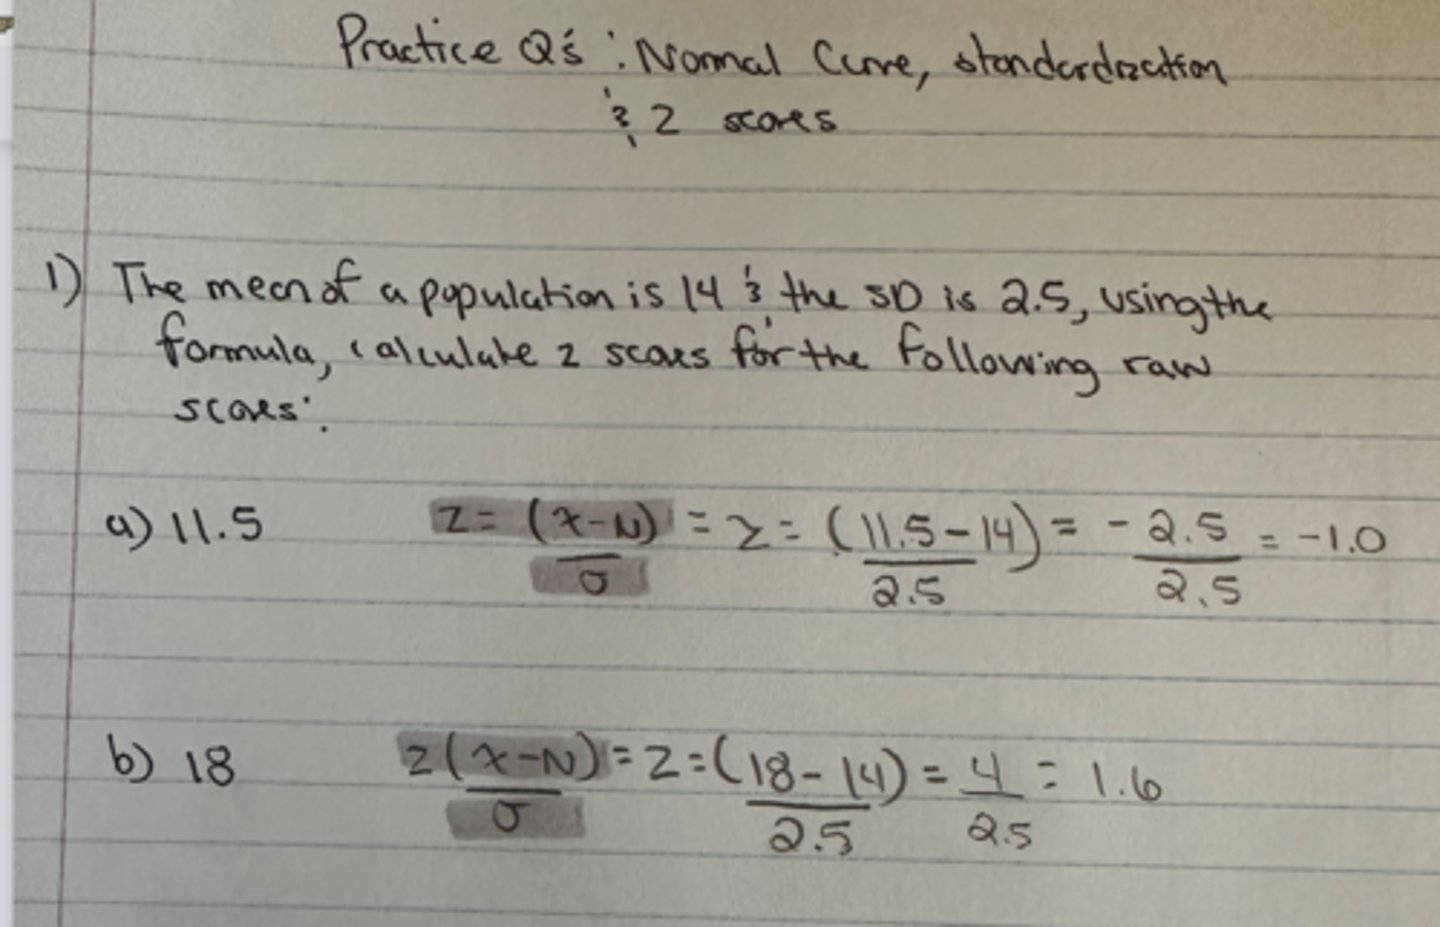 Practice Q's : Normal Curve, standardization
& z scores
1) The mean of a population is 14 & the SD is 2.5, using the
formula, calculate z scores for the following raw
scores:
a) 11.5 z = (x-N)/σ = z = (11.5-14)/2.5 = -2.5/2.5 = -1.0
b) 18 z(x-N)/σ = z = (18-14)/2.5 = 4/2.5 = 1.6